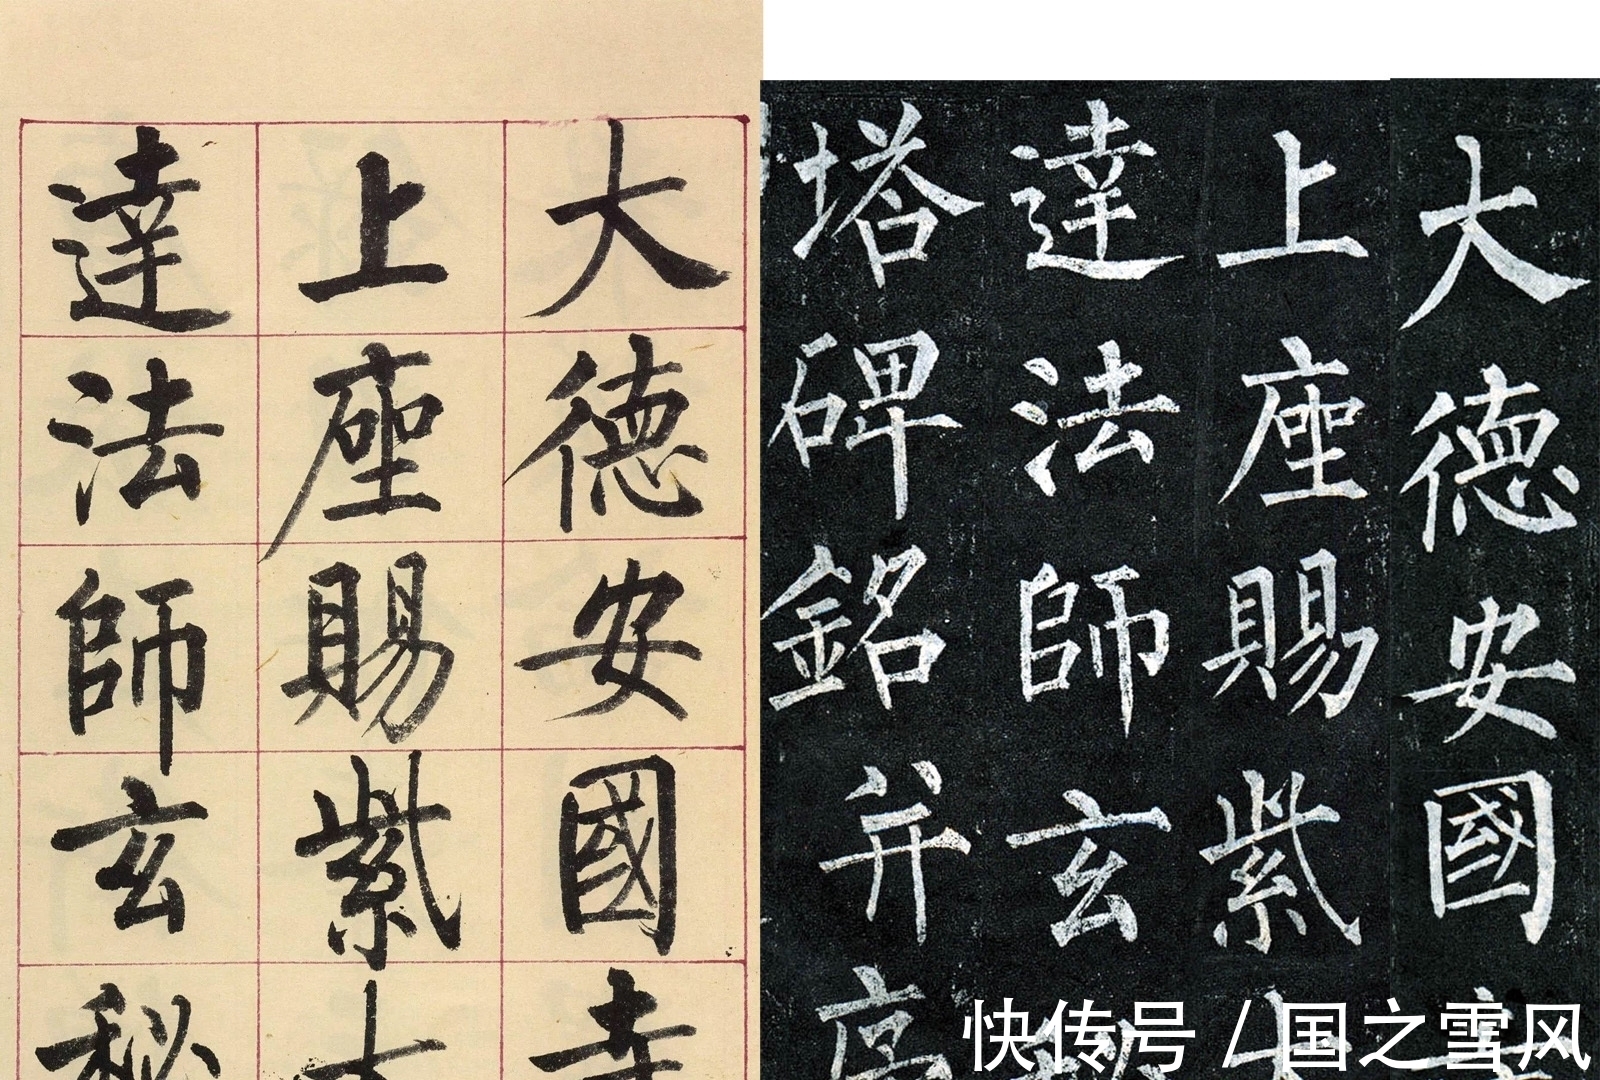 大德安國寺
上座賜紫大
達法師玄秘
大德安國
上座賜紫
達法師玄
塔碑銘并序
快传号 / 国之雪风